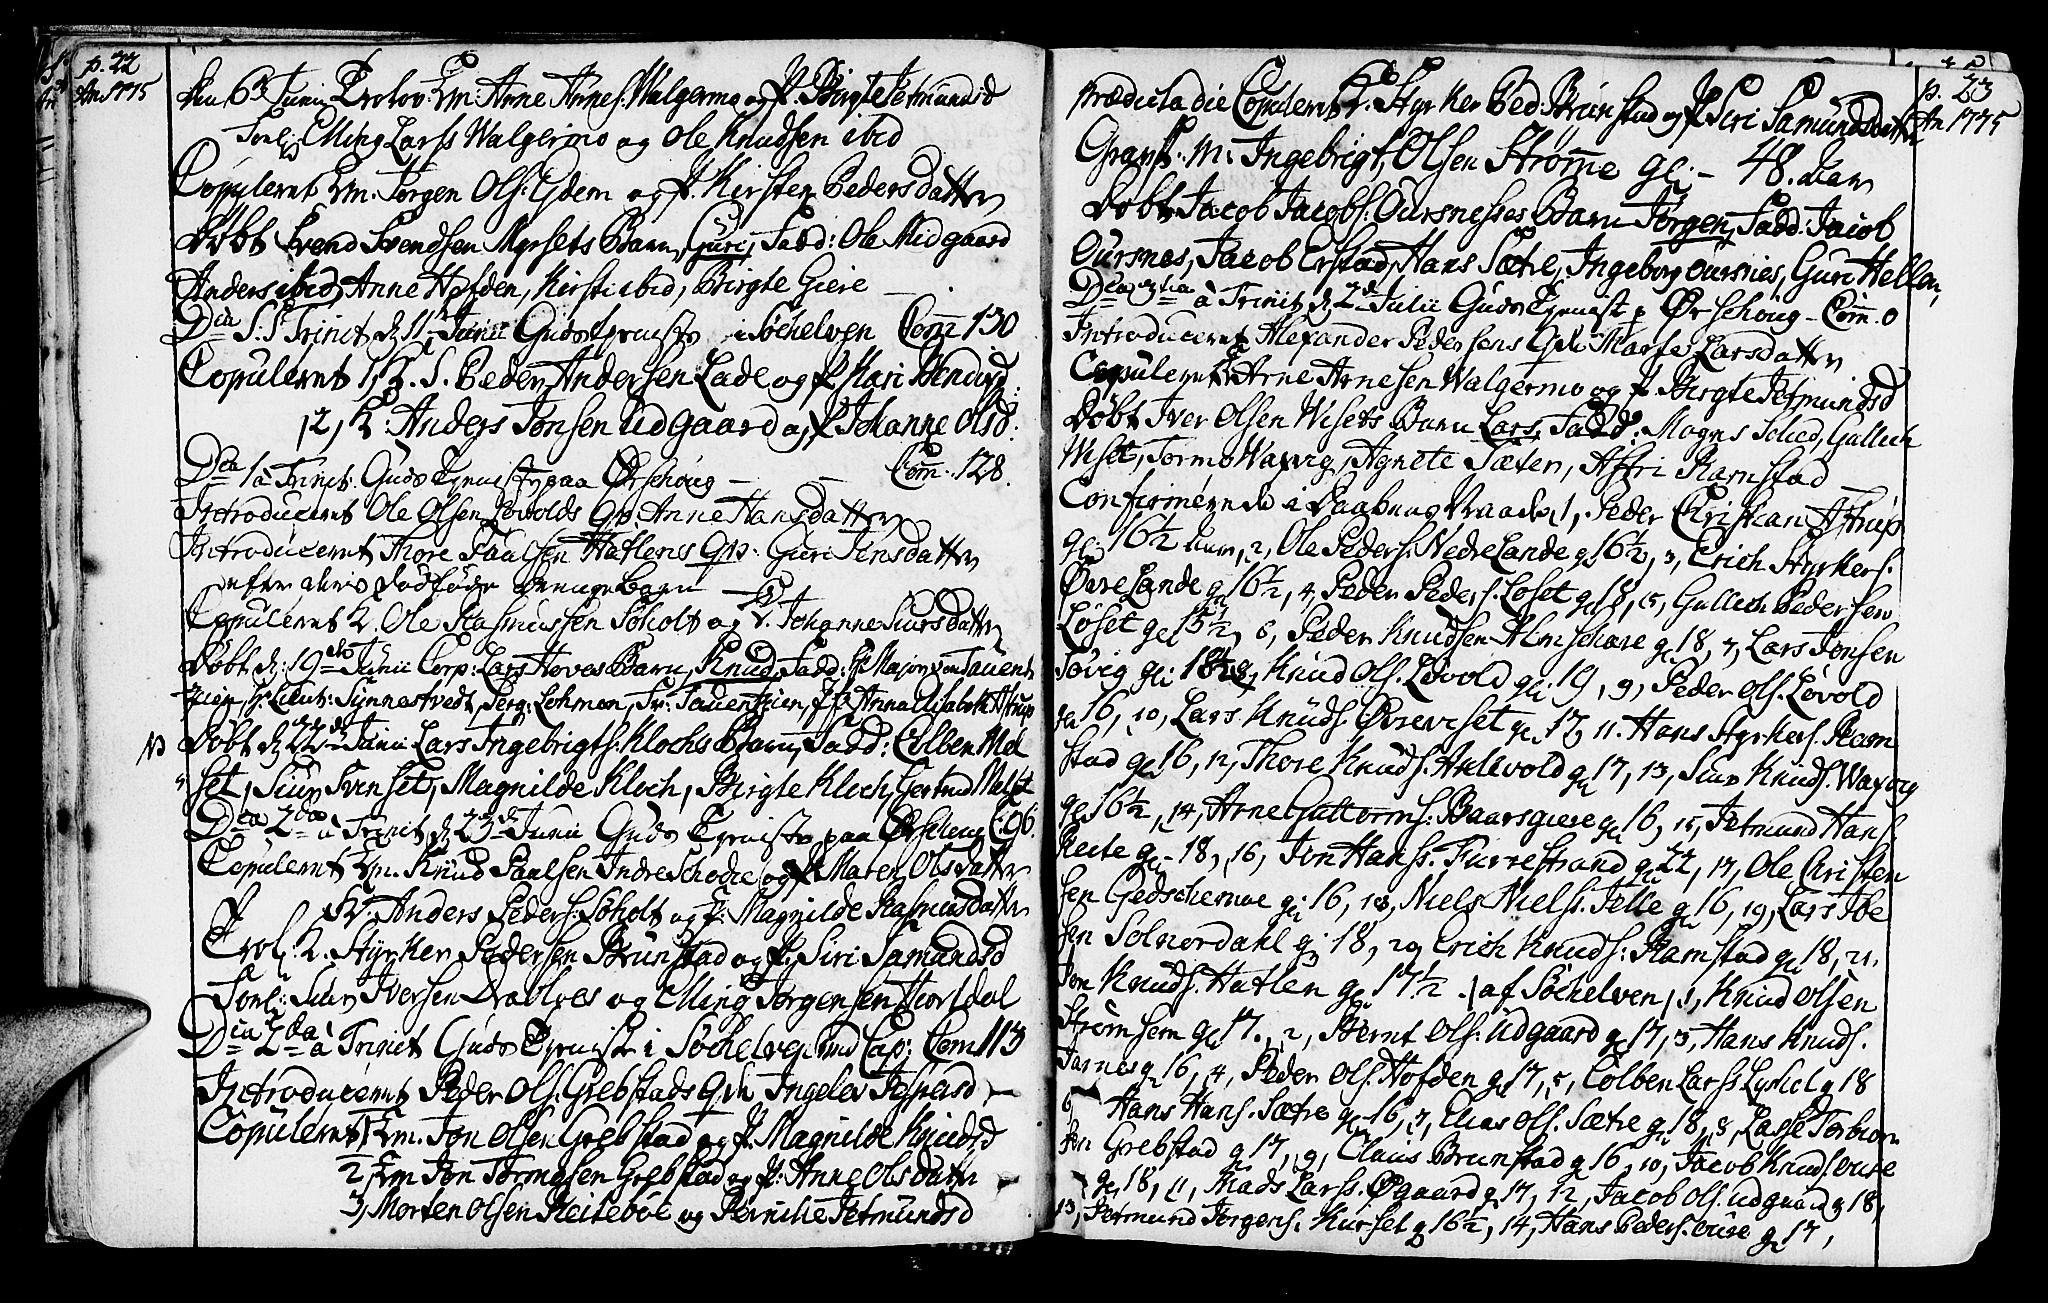 p. 22
An 1775
den 6 Junii Trolov: Em: Arne Arnes: Walgermo og P. Birgte Jetmundsd
Forl: Elling Larss Walgermo og Ole Knudsen ibid
Copuleret Em. Jørgen Ols: Ejdem og P. Kirsten Pedersdatter
Døbt Svend Svendsen Myrsets Barn, Guri, Fadd: Ole Midgaard
Anders ibid, Anne Hofden, Kirsti ibid, Birgte Giere
Dca S.S. Trinit d. 11 Junii Guds Tieneste i Søchelven Com 130
Copuleret 1, K. S. Peder Andersen Lade og P Kari Bendixd:
2, K: Anders Jonsen Udgaard og P Johanne Olsd:
Dca 1 a Trinit. Guds Tieneste paa Ørschoug - Com. 128.
Introduceret Ole Olsen Løvolds Qv. Anne Hansdatter
Introduceret Thore Paulsen Hatlens Qv: Guri Jensdatter
efter deris dødføde Drenge Barn
Copuleret K. Ole Rasmussen Søholt og P. Johanne Siursdatter
Døbt d: 19de Junii Corp: Lars Hoves Barn, Knud, Fadd: Hr Major von Tauent
zien, Hr Lieut: Synnestvedt, Serg: Lohman, Fr: Tauentzien, Jfr Anna Elisabeth Astrup
NB Døbt d 22de Junii Lars Ingebrigts: Klochs Barn, Fadd: Colben Mel
set, Siur Svinset, Magnilde Kloch, Birgte Kloch, Gertrud Melset
Dca 2da a Trinit. d. 23d Junii Guds Tieneste paa Ørschoug C: 96.
Copuleret Em. Knud Paulsen Indre Schodie og P. Maren Olsdatter
K: Anders Peders: Søholt og P: Magnilde Rasmusdatter
Trol: K. Styrker Pedersen Brunstad og P. Siri Samundsd
Forl: Siur Iversen Drabløs og Elling Jørgensen Hiortdal
Dca 2da a Trinit Guds Tieneste i Søchelven ved Cap: Com 113
Introduceret Peder Ols: Grebstads Qv Ingelev Jespersd
Copuleret 1 Em. Jon Olsen Grebstad og P. Magnilde Knudsd
2 Em Jon Tormosen Grebstad og P: Anne Olsdatter
3, Morten Olsen Reitebøe og Pernille Jetmundsd
p. 23
An 1775
Prædicta die Copuleret K. Styrker Ped: Brunstad og P Siri Samundsdatter
Gravf: M: Ingebrigt Olsen Strømme gl: - 48. Aar
Døbt Jacob Jacobs: Oursneses Barn Jørgen, Fadd: Jacob
Oursnes, Jacob Erstad, Hans Sætre, Ingeborg Oursnes, Guri Hellen,
Dca 3tia a Trinit d 2d Julii Guds Tieneste p Ørschoug - Com. 0
Introduceret Alexander Pedersens Qv: Marte Larsdatter
Copuleret Arne Arnesen Walgermo og P. Birgte Jetmundsd
Døbt Iver Olsen Wisets Barn Lars, Fadd: Mogns Sched, Gullich
Wiset, Tormo Waxvig, Agnete Sæter, Astri Ramstad
Confirmerede i Daabens Naade, 1, Peder Christian Astrup
gl: 16½ Aar, 2, Ole Peders: Nedre Lande g 16½, 3, Erich Styrkers:
Øvre Lande g 16½, 4, Peder Peders. Løset gl 18, 5, Gullich Pedersen
Løset gl 15½, 6, Peder Knudsen Almschare gl 18, 7, Lars Jonsen
Søvig gl: 18½, 8, Knud Ols. Løvold gl: 19, 9, Peder Ols. Løvold
gl 16, 10, Lars Knuds Øvreviset gl 17, 11. Hans Styrkers. Ram
stad gl 16, 12, Thore Knuds. Aullvold gl 17, 13, Siur Knuds. Waxvig
gl 16½, 14, Arne Guttorms: Baarsgiere gl 16, 15, Jetmund Hans:
Reite gl - 18, 16, Jon Hans. Furrestrand gl 22, 17, Ole Christen
sen Gedschernæ gl: 16, 18, Niels Niels. Jelle gl 16, 19, Lars Joe
sen Solnørdahl gl: 18, 20, Erich Knuds: Ramstad gl 18, 21.
Jon Knuds. Hatlen gl 17½. / af Søchelven / 1, Knud Olsen
Strømsem gl 17., 2, Bernt Ols: Udgaard gl 17, 3, Hans Knuds.
Jarnes g 16, 4, Peder Ols. Hofden gl 17, 5, Colben Larss Lyshol g 18
6, Hans Hans. Sætre gl 16, 7, Elias Ols. Sætre gl 18, 8, Lasse Torbiorn
sen Grebstad gl 17, 9, Claus Brunstad gl 16, 10, Jacob Knuds. Oure
gl 18, 11, Mads Larss. Øgaard gl 17, 12, Jacob Ols. Udgaard g 18,
13, Petmund Jørgens: Kurset g 16½, 14, Hans Peders. Oure gl 17,